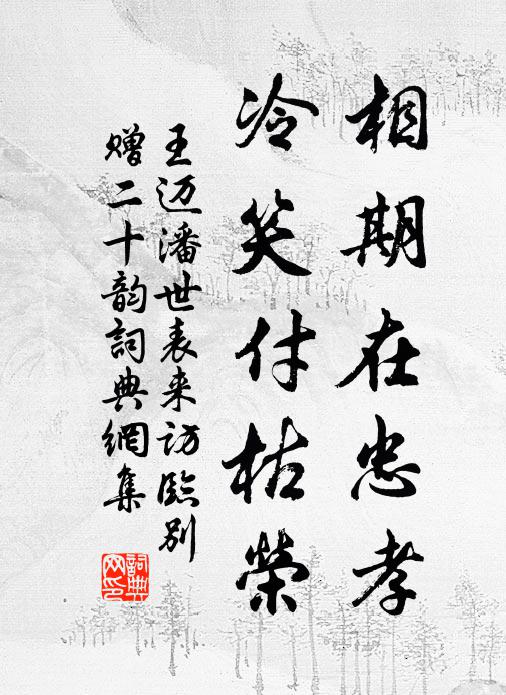 相期在忠孝
冷笑付枯榮
王迈潘世表来访臨别
赠二十韵詞典網集
詞典
网印